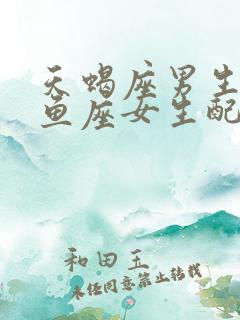 天蝎座男生
鱼座女生配
和田玉
未经同意禁止转载